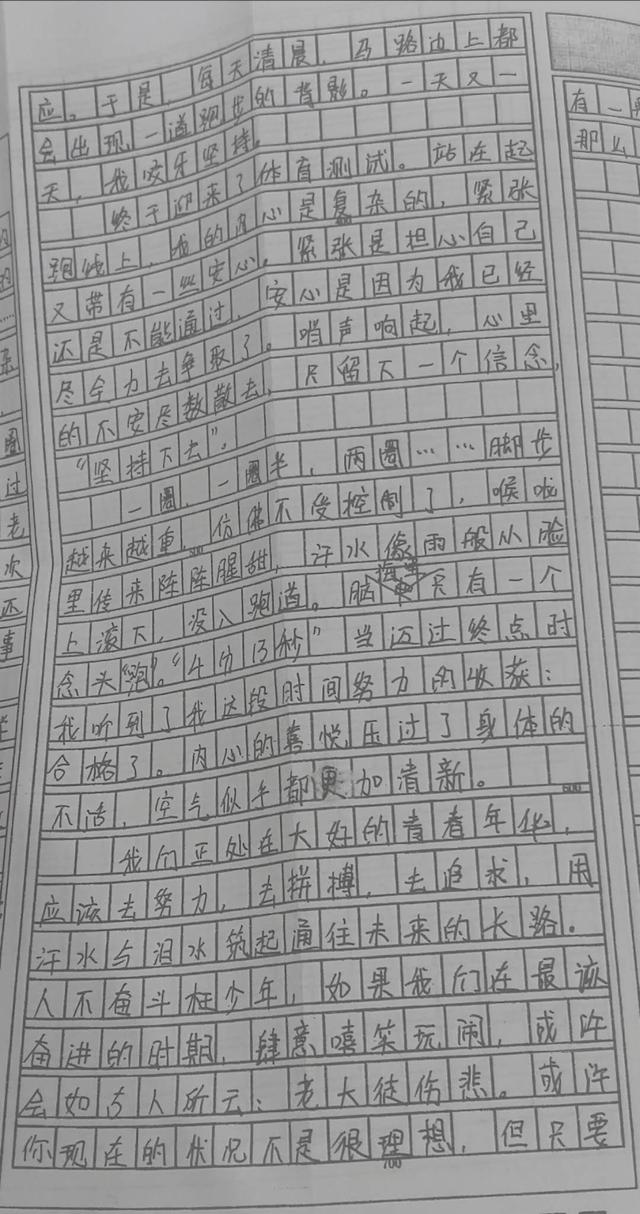 应。于是，每天清晨，马路边上都
会出现一道跑步的背影。一天又一
天，我咬牙坚持。
终于迎来了体育测试。站在起
跑线上，我的内心是复杂的，紧张
又带有一丝安心。紧张是担心自己
还是不能通过，安心是因为我已经
尽全力去争取了。哨声响起，心里
的不安尽数散去，只留下一个信念，
“坚持下去”。
一圈，一圈半，两圈……脚步
越来越重，仿佛不受控制了，喉咙
里传来阵阵腥甜，汗水像雨般从脸
上滚下，没入跑道。脑海里只有一个
念头“跑”。“4分13秒”当迈过终点时
我听到了我这段时间努力的收获：
合格了。内心的喜悦压过了身体的
不适，空气似乎都更加清新。
我们正处在大好的青春年华，
应该去努力，去拼搏，去追求，用
汗水与泪水筑起通往未来的长路。
人不奋斗枉少年，如果我们在最该
奋进的时期，肆意嘻笑玩闹，或许
会如古人所云：老大徒伤悲。或许
你现在的状况不是很理想，但只要
500
600
700
有一
那么
圈
过
老
次
还
事